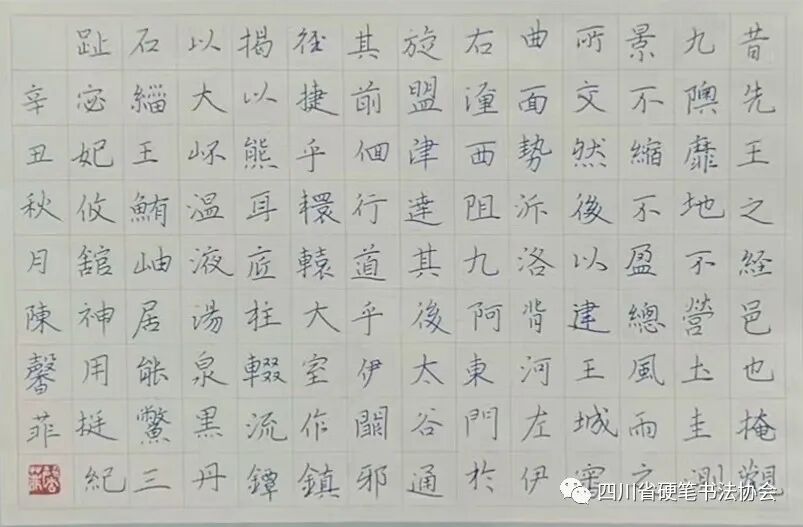 昔先王之経邑也掩觀
九隩靡地不營土圭測
景不縮不盈總風雨之
所交然後以建王城審
曲面勢泝洛背河左伊
右瀍西阻九阿東門於
旋盟津達其後太谷通
其前佪行道乎伊闕邪
徑捷乎轘轅大室作鎮
揭以熊耳底柱輟流鐔
以大岯温液湯泉黑丹
石緇王鮪岫居能鱉三
趾宓妃攸舘神用挺紀
辛丑秋月陳馨菲
四川省硬笔书法协会